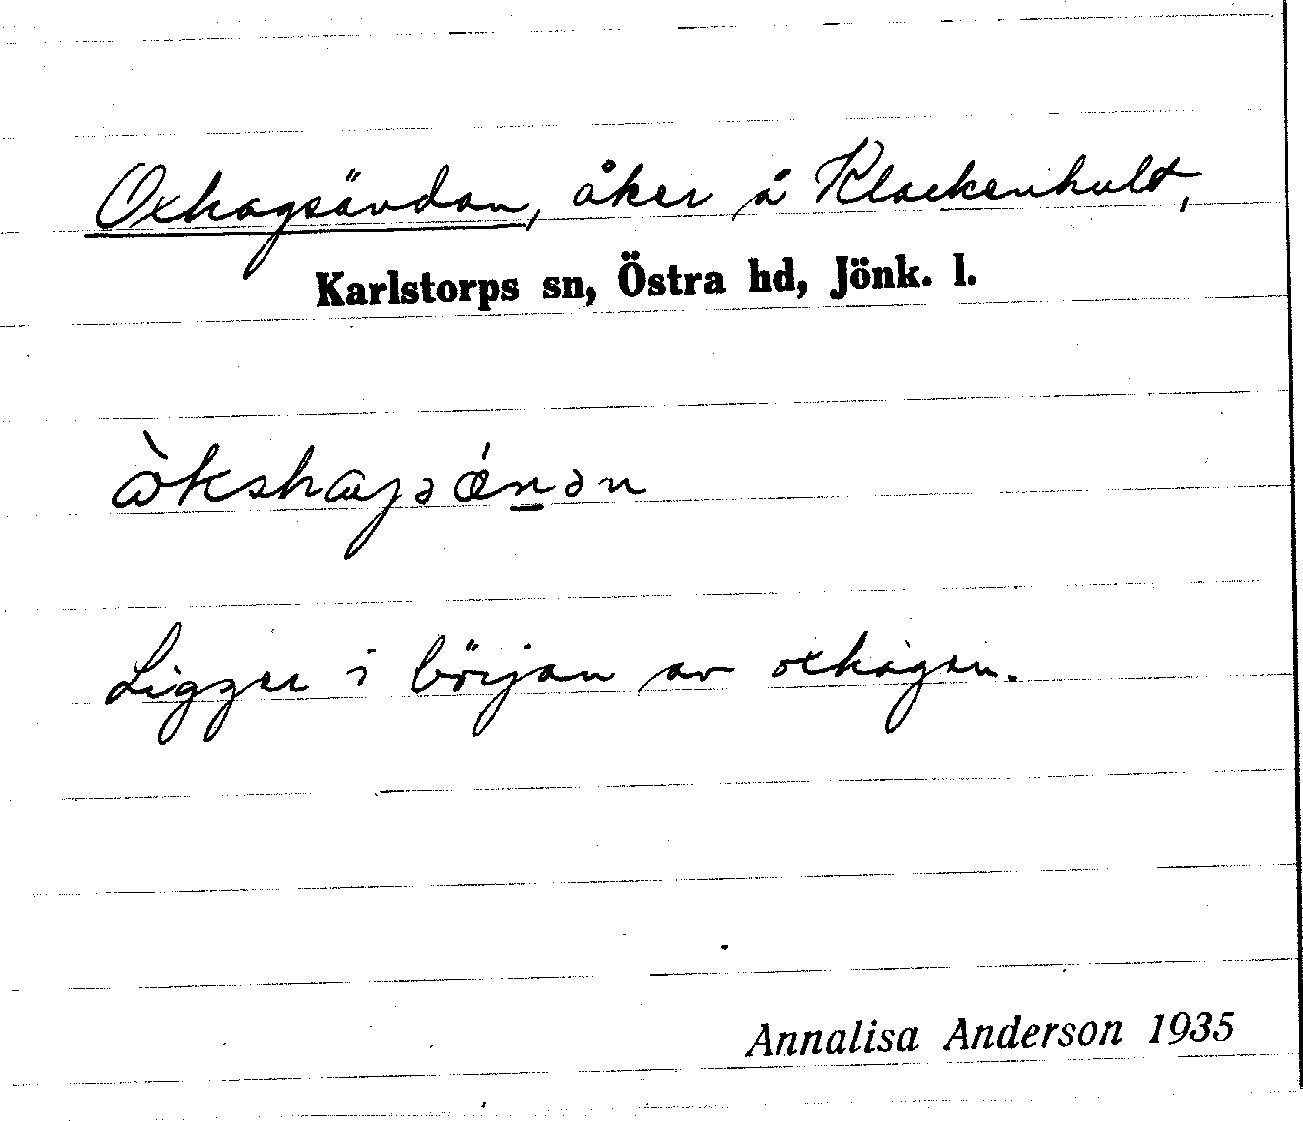 Oxhagsändan, åker å Klackenhult,
Karlstorps sn, Östra hd, Jönk. l.
Ligger i början av oxhagen.
Annalisa Anderson 1935